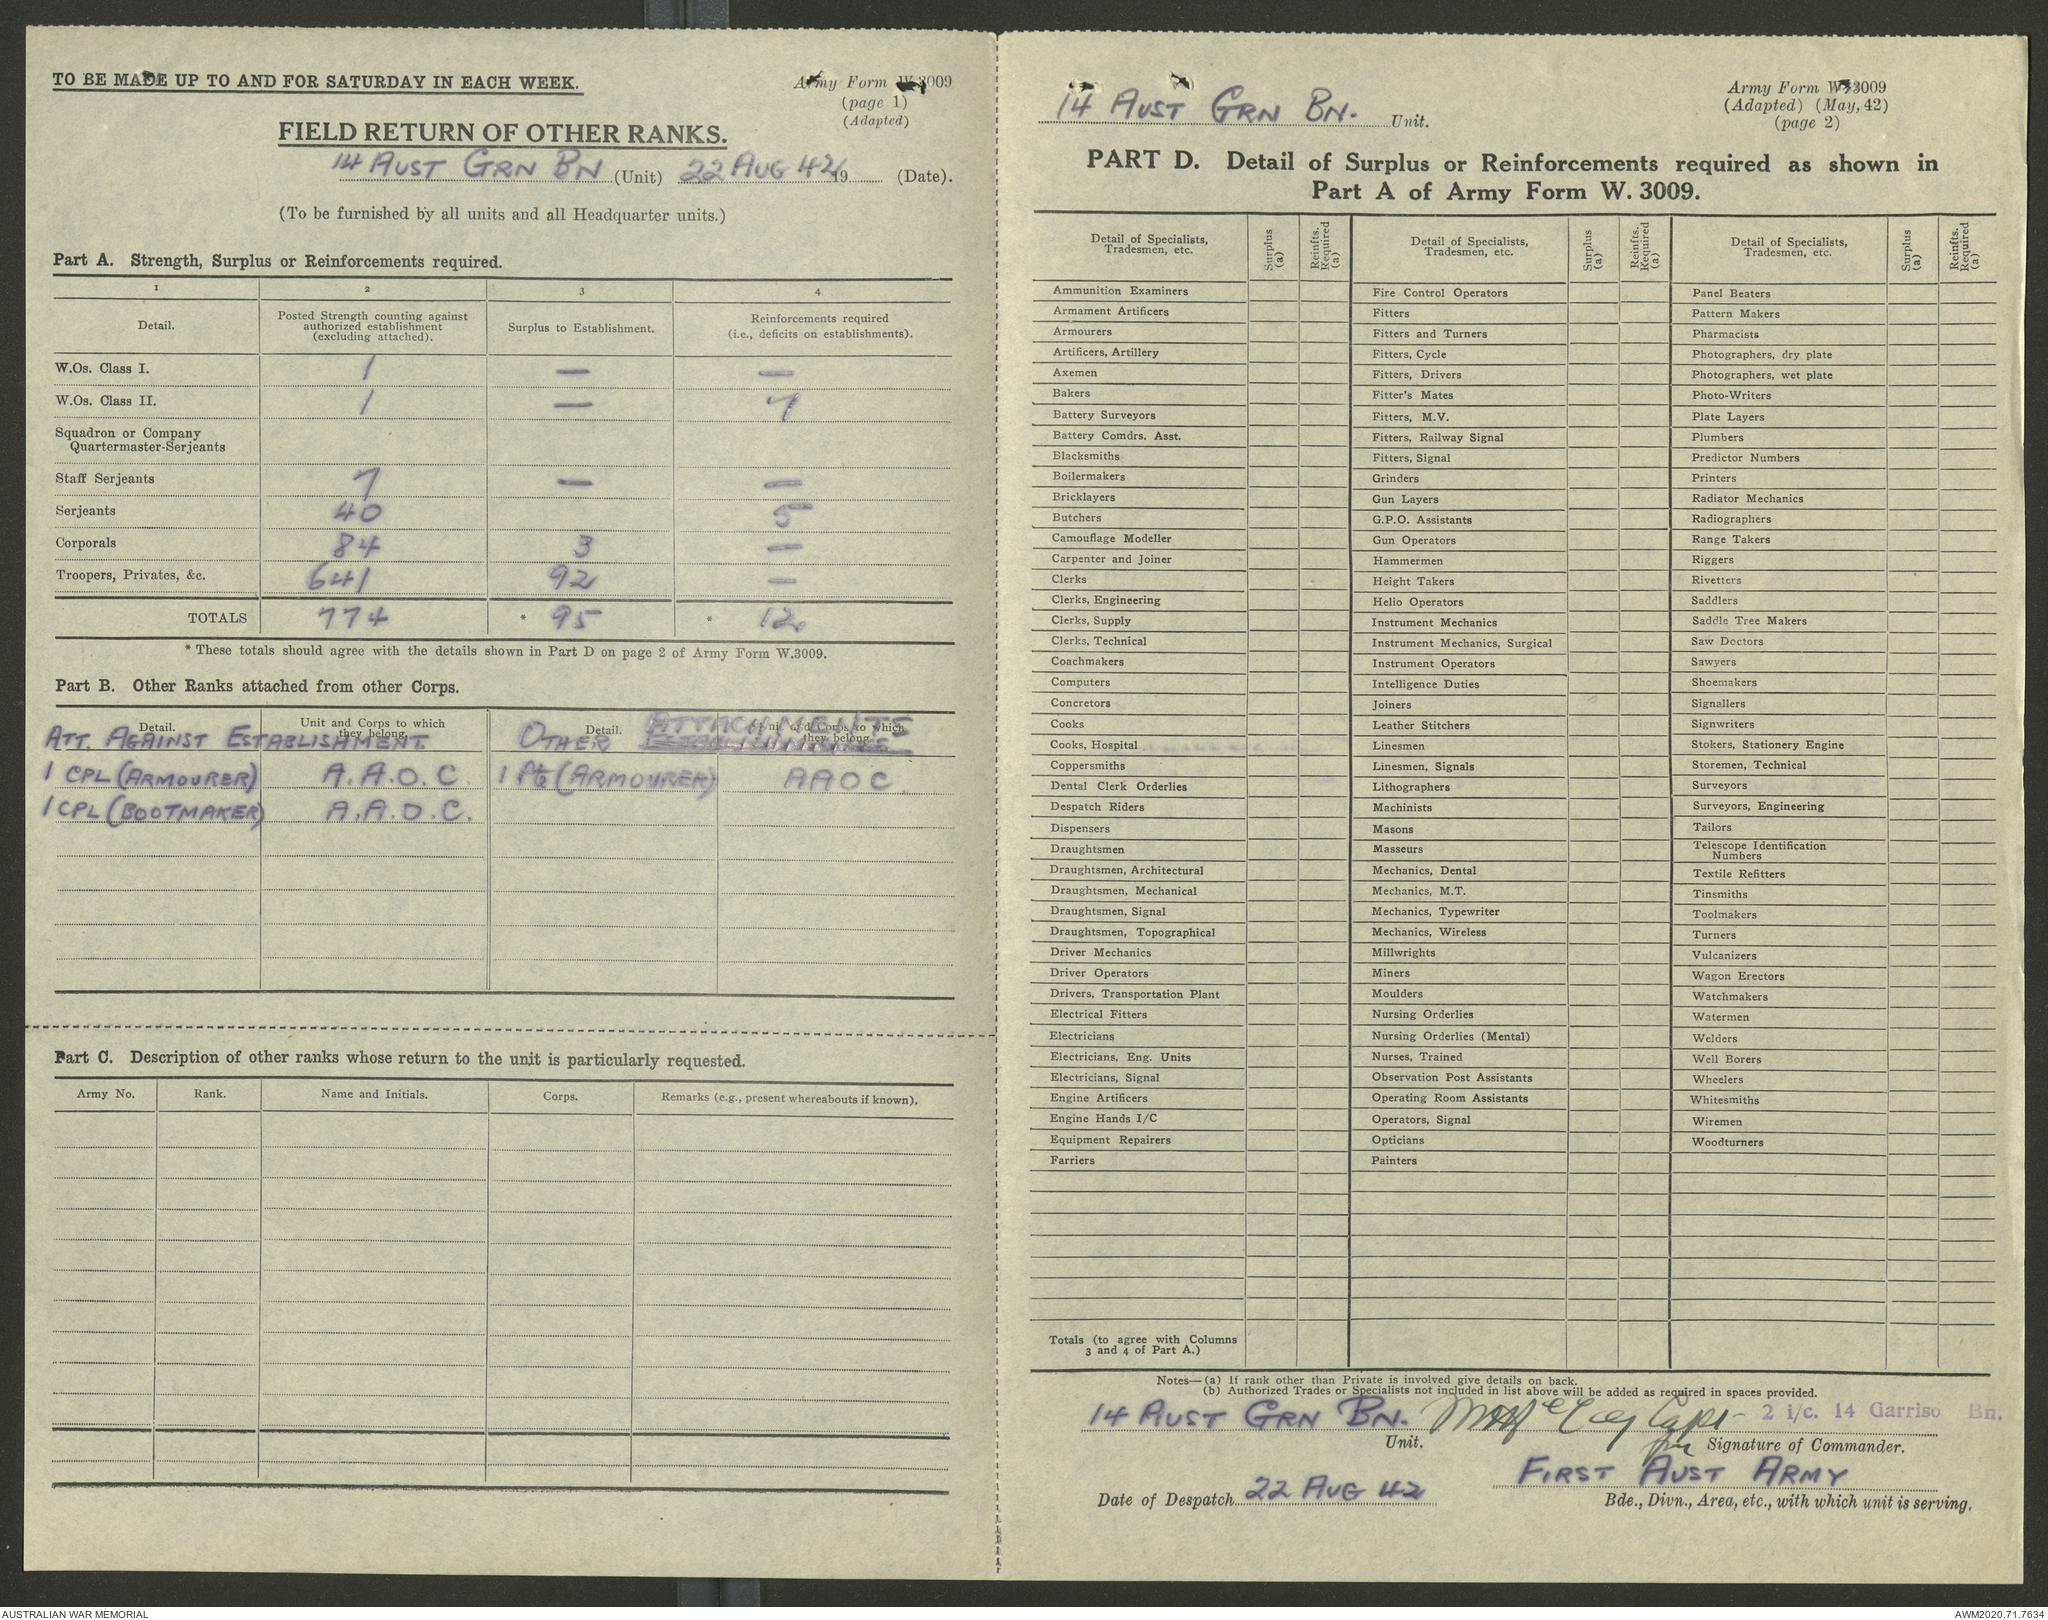 TO BE MADE UP TO AND FOR SATURDAY IN EACH WEEK.
Army Form W.3009
(page 1)
(Adapted)
FIELD RETURN OF OTHER RANKS.
14 AUST GRN BN (Unit) 22 AUG 42 19 (Date).
(To be furnished by all units and all Headquarter units.)
Part A. Strength, Surplus or Reinforcements required.
1 2 3 4
Detail. Posted Strength counting against authorized establishment (excluding attached). Surplus to Establishment. Reinforcements required (i.e., deficits on establishments).
W.Os. Class I. 1 — —
W.Os. Class II. 1 — 7
Squadron or Company
Quartermaster-Serjeants
Staff Serjeants 7 — —
Serjeants 40 5
Corporals 84 3 —
Troopers, Privates, &c. 641 92 —
TOTALS 774 * 95 * 12
* These totals should agree with the details shown in Part D on page 2 of Army Form W.3009.
Part B. Other Ranks attached from other Corps.
Detail. Unit and Corps to which they belong. Detail. Unit and Corps to which they belong.
ATT. AGAINST ESTABLISHMENT OTHER ATTACHMENTS
1 CPL (ARMOURER) A.A.O.C. 1 Pte (ARMOURER) AAOC.
1 CPL (BOOTMAKER) A.A.O.C.
Part C. Description of other ranks whose return to the unit is particularly requested.
Army No. Rank. Name and Initials. Corps. Remarks (e.g., present whereabouts if known).
14 AUST GRN BN. Unit.
Army Form W.3009
(Adapted) (May, 42)
(page 2)
PART D. Detail of Surplus or Reinforcements required as shown in
Part A of Army Form W. 3009.
Detail of Specialists, Tradesmen, etc. Surplus (a) Reinfts. Required (a) Detail of Specialists, Tradesmen, etc. Surplus (a) Reinfts. Required (a) Detail of Specialists, Tradesmen, etc. Surplus (a) Reinfts. Required (a)
Ammunition Examiners Fire Control Operators Panel Beaters
Armament Artificers Fitters Pattern Makers
Armourers Fitters and Turners Pharmacists
Artificers, Artillery Fitters, Cycle Photographers, dry plate
Axemen Fitters, Drivers Photographers, wet plate
Bakers Fitter's Mates Photo-Writers
Battery Surveyors Fitters, M.V. Plate Layers
Battery Comdrs. Asst. Fitters, Railway Signal Plumbers
Blacksmiths Fitters, Signal Predictor Numbers
Boilermakers Grinders Printers
Bricklayers Gun Layers Radiator Mechanics
Butchers G.P.O. Assistants Radiographers
Camouflage Modeller Gun Operators Range Takers
Carpenter and Joiner Hammermen Riggers
Clerks Height Takers Rivetters
Clerks, Engineering Helio Operators Saddlers
Clerks, Supply Instrument Mechanics Saddle Tree Makers
Clerks, Technical Instrument Mechanics, Surgical Saw Doctors
Coachmakers Instrument Operators Sawyers
Computers Intelligence Duties Shoemakers
Concretors Joiners Signallers
Cooks Leather Stitchers Signwriters
Cooks, Hospital Linesmen Stokers, Stationery Engine
Coppersmiths Linesmen, Signals Storemen, Technical
Dental Clerk Orderlies Lithographers Surveyors
Despatch Riders Machinists Surveyors, Engineering
Dispensers Masons Tailors
Draughtsmen Masseurs Telescope Identification Numbers
Draughtsmen, Architectural Mechanics, Dental Textile Refitters
Draughtsmen, Mechanical Mechanics, M.T. Tinsmiths
Draughtsmen, Signal Mechanics, Typewriter Toolmakers
Draughtsmen, Topographical Mechanics, Wireless Turners
Driver Mechanics Millwrights Vulcanizers
Driver Operators Miners Wagon Erectors
Drivers, Transportation Plant Moulders Watchmakers
Electrical Fitters Nursing Orderlies Watermen
Electricians Nursing Orderlies (Mental) Welders
Electricians, Eng. Units Nurses, Trained Well Borers
Electricians, Signal Observation Post Assistants Wheelers
Engine Artificers Operating Room Assistants Whitesmiths
Engine Hands I/C Operators, Signal Wiremen
Equipment Repairers Opticians Woodturners
Farriers Painters
Totals (to agree with Columns
3 and 4 of Part A.)
Notes—(a) If rank other than Private is involved give details on back.
(b) Authorized Trades or Specialists not included in list above will be added as required in spaces provided.
14 AUST GRN BN. Capt 2 i/c. 14 Garriso Bn.
Unit. for Signature of Commander.
FIRST AUST ARMY
Date of Despatch 22 AUG 42 Bde., Divn., Area, etc., with which unit is serving.
AUSTRALIAN WAR MEMORIAL
AWM2020.71.7634